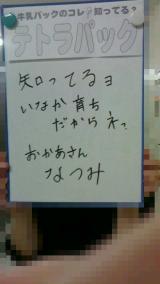 牛乳パックのコレ知ってる?
テトラパック
知ってるョ
いなか育ち
だからネ?
おかあさん
なつみ